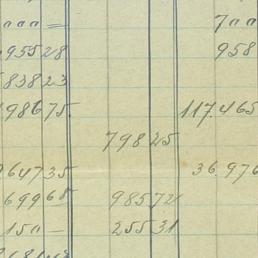 000 = 700
95528 958
83823
98675 117.465
79825
64735 36.976
69968 98572
150 — 25531